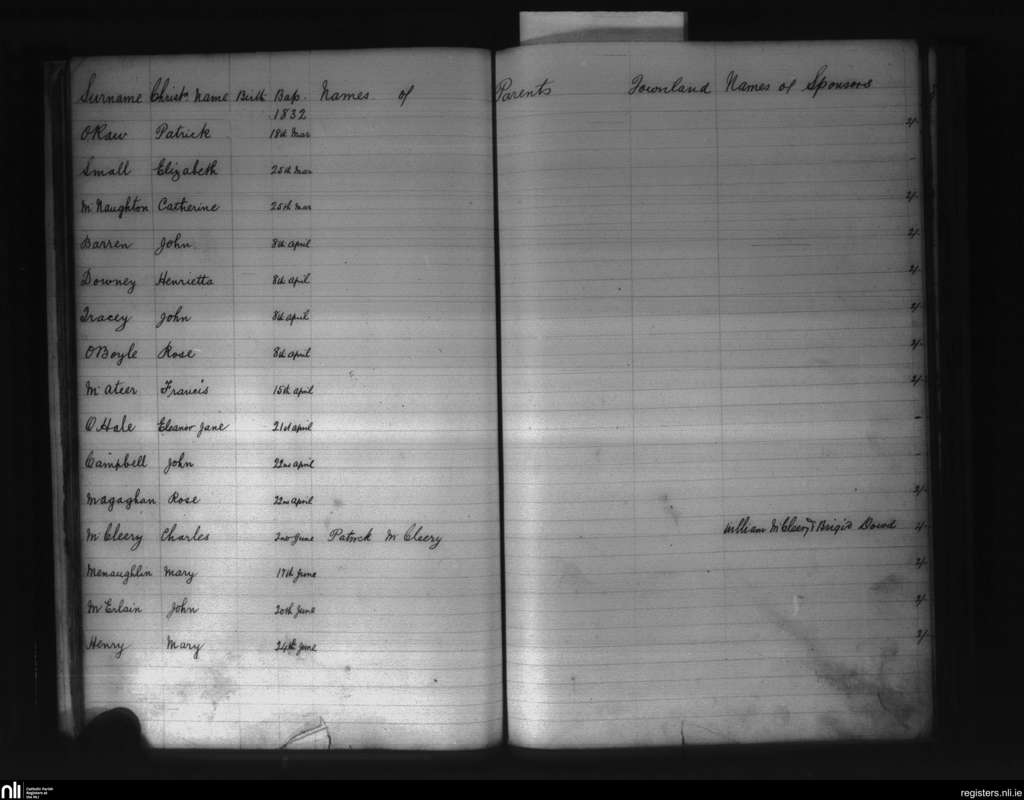 Surname Christn Name Birth Bap. Names of Parents Townland Names of Sponsors
1832
O'Raw Patrick 18th Mar 2/-
Small Elizabeth 25th Mar -
McNaughton Catherine 25th Mar 2/-
Darren John 8th April 2/-
Downey Henrietta 8th April 2/-
Tracey John 8th April 2/-
O'Boyle Rose 8th April 2/-
McAteer Francis 15th April 2/-
O'Hale Eleanor Jane 21st April -
Campbell John 22nd April -
Magaghan Rose 22nd April 2/-
McCleery Charles 2nd June Patrick McCleery William McCleery & Brigid Dowd 2/-
Menaughlin Mary 17th June 2/-
McErlain John 20th June 2/-
Henry Mary 24th June 2/-
nli Catholic Parish Registers at the NLI
registers.nli.ie